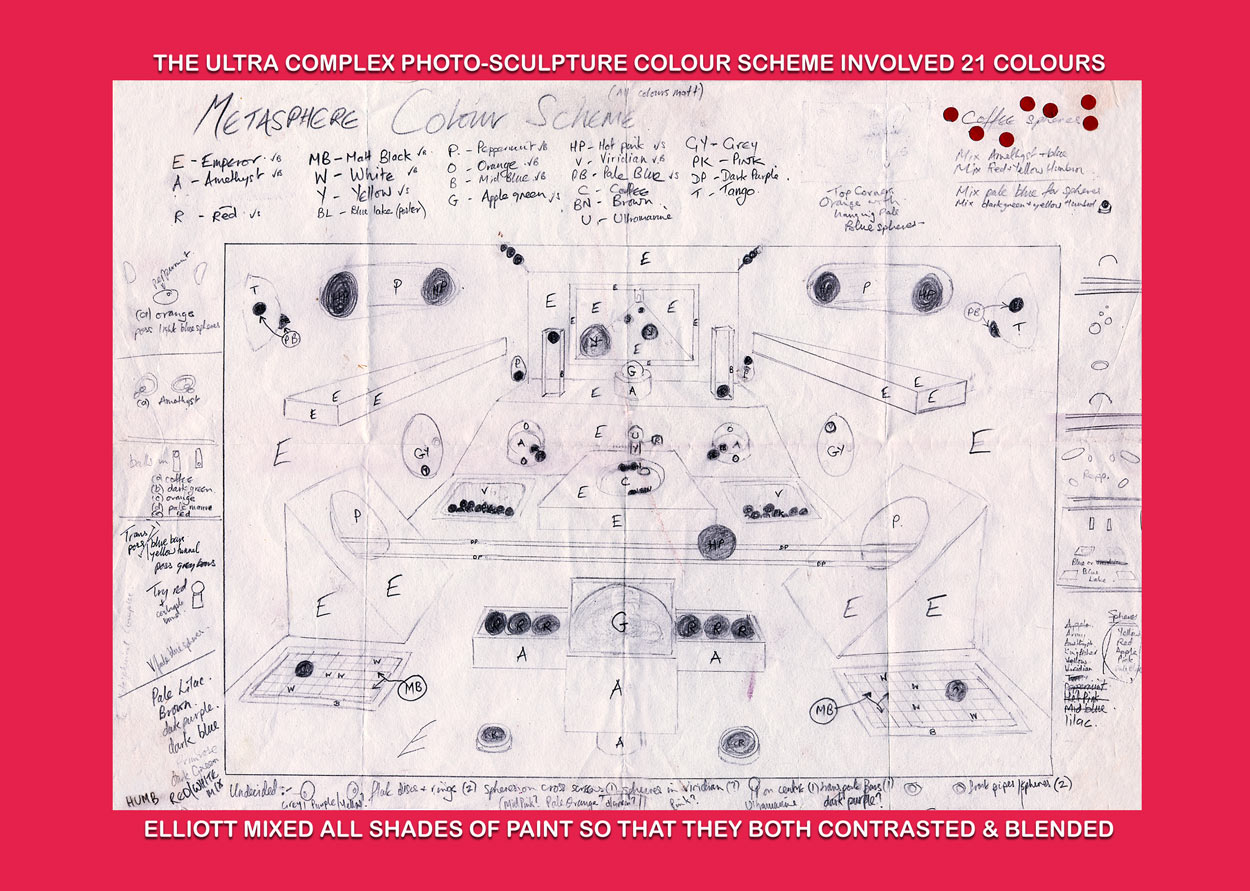 THE ULTRA COMPLEX PHOTO-SCULPTURE COLOUR SCHEME INVOLVED 21 COLOURS
METASPHERE COLOUR SCHEME
(All colours matt)
Coffee spheres
E - Emperor. VB
A - Amethyst. VB
R - Red. VS
MB - Matt Black VB.
W - White. VB
Y - Yellow VS
BL - Blue lake (poster)
P. - Peppermint VB
O - Orange VB
B - Mid Blue. VB
G - Apple green VS
HP - Hot pink VS
V - Viridian VB
PB - Pale Blue VS
C - Coffee
BN - Brown.
U - Ultramarine
GY - Grey
PK - PINK
DP - Dark Purple.
T - Tango.
Mix Amethyst + blue
Mix Red + Yellow
Mix pale blue for spheres
Mix dark green + yellow
Top Corners
Orange with
hanging Pale
Blue spheres
peppermint
(a) orange
poss light blue spheres
(a) Amethyst
balls in
(a) coffee
(b) dark green
(c) orange
(d) pale mauve
(e) red
Trans
poss
blue bars
yellow tunnel
poss grey bars
Try red
Pale Lilac.
Brown.
dark purple.
dark blue
dark Green
RED/WHITE
MIX
HUMB
E
E
E
E
E
E
E
E
T
PB
HP
P
HP
HP
P
HP
PB
T
P
G
A
B
B
E
E
E
E
E
E
E
E
E
GY
Y
O
A
O
E
U
Y
R
O
A
O
V
GY
E
V
E
C
V
E
P
P.
DP
DP
HP
DP
DP
E
E
E
E
R
R
R
G
R
R
R
A
A
A
A
W
W
W
W
MB
B
MB
W
W
W
B
E
R
Repp.
Blue or
Blue
Lake.
Spheres
Apple
Amethyst
Yellow
Viridian
Peppermint
Hot Pink
Mid blue
lilac.
Yellow
Red
Apple
Pink
Undecided :-
Grey/Purple/Yellow?
Pink discs + rings (2)
spheres on cross screws (1)
(Mid Pink? Pale Orange?
spheres in viridian (?)
Pink?
on centre (1)
Ultramarine
transparent Bars (1)
dark purple?
pipes/spheres (2)
ELLIOTT MIXED ALL SHADES OF PAINT SO THAT THEY BOTH CONTRASTED & BLENDED